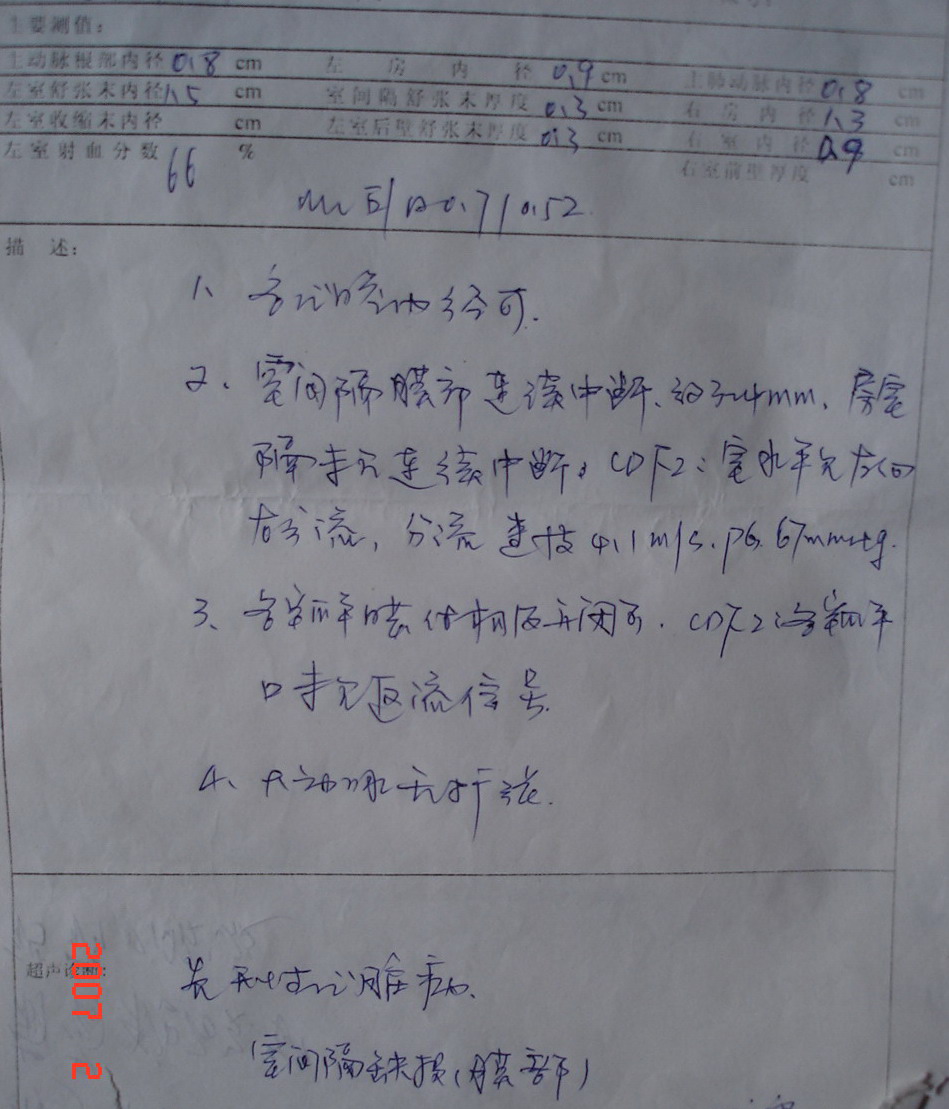 主要测值：
主动脉根部内径 0.8 cm 左房内径 0.9 cm 主肺动脉内径 0.8 cm
左室舒张末内径 1.5 cm 室间隔舒张末厚度 0.3 cm 右房内径 1.3 cm
左室收缩末内径 cm 左室后壁舒张末厚度 0.3 cm 右室内径 0.9 cm
左室射血分数 66 % 右室前壁厚度 cm
E/A 0.7/0.52
描述：
1、各心腔内径可.
2、室间隔膜部连续中断、约3-4mm、房室
隔未见连续中断, CDFI：室水平见左向
右分流, 分流速度4.1m/s. PG 67mmHg.
3、各瓣膜 闭可. CDFI：各瓣
口未见返流信号.
4、大动脉无扩张.
超声诊断：
先天性心脏病、
室间隔缺损(膜部)
2007 2